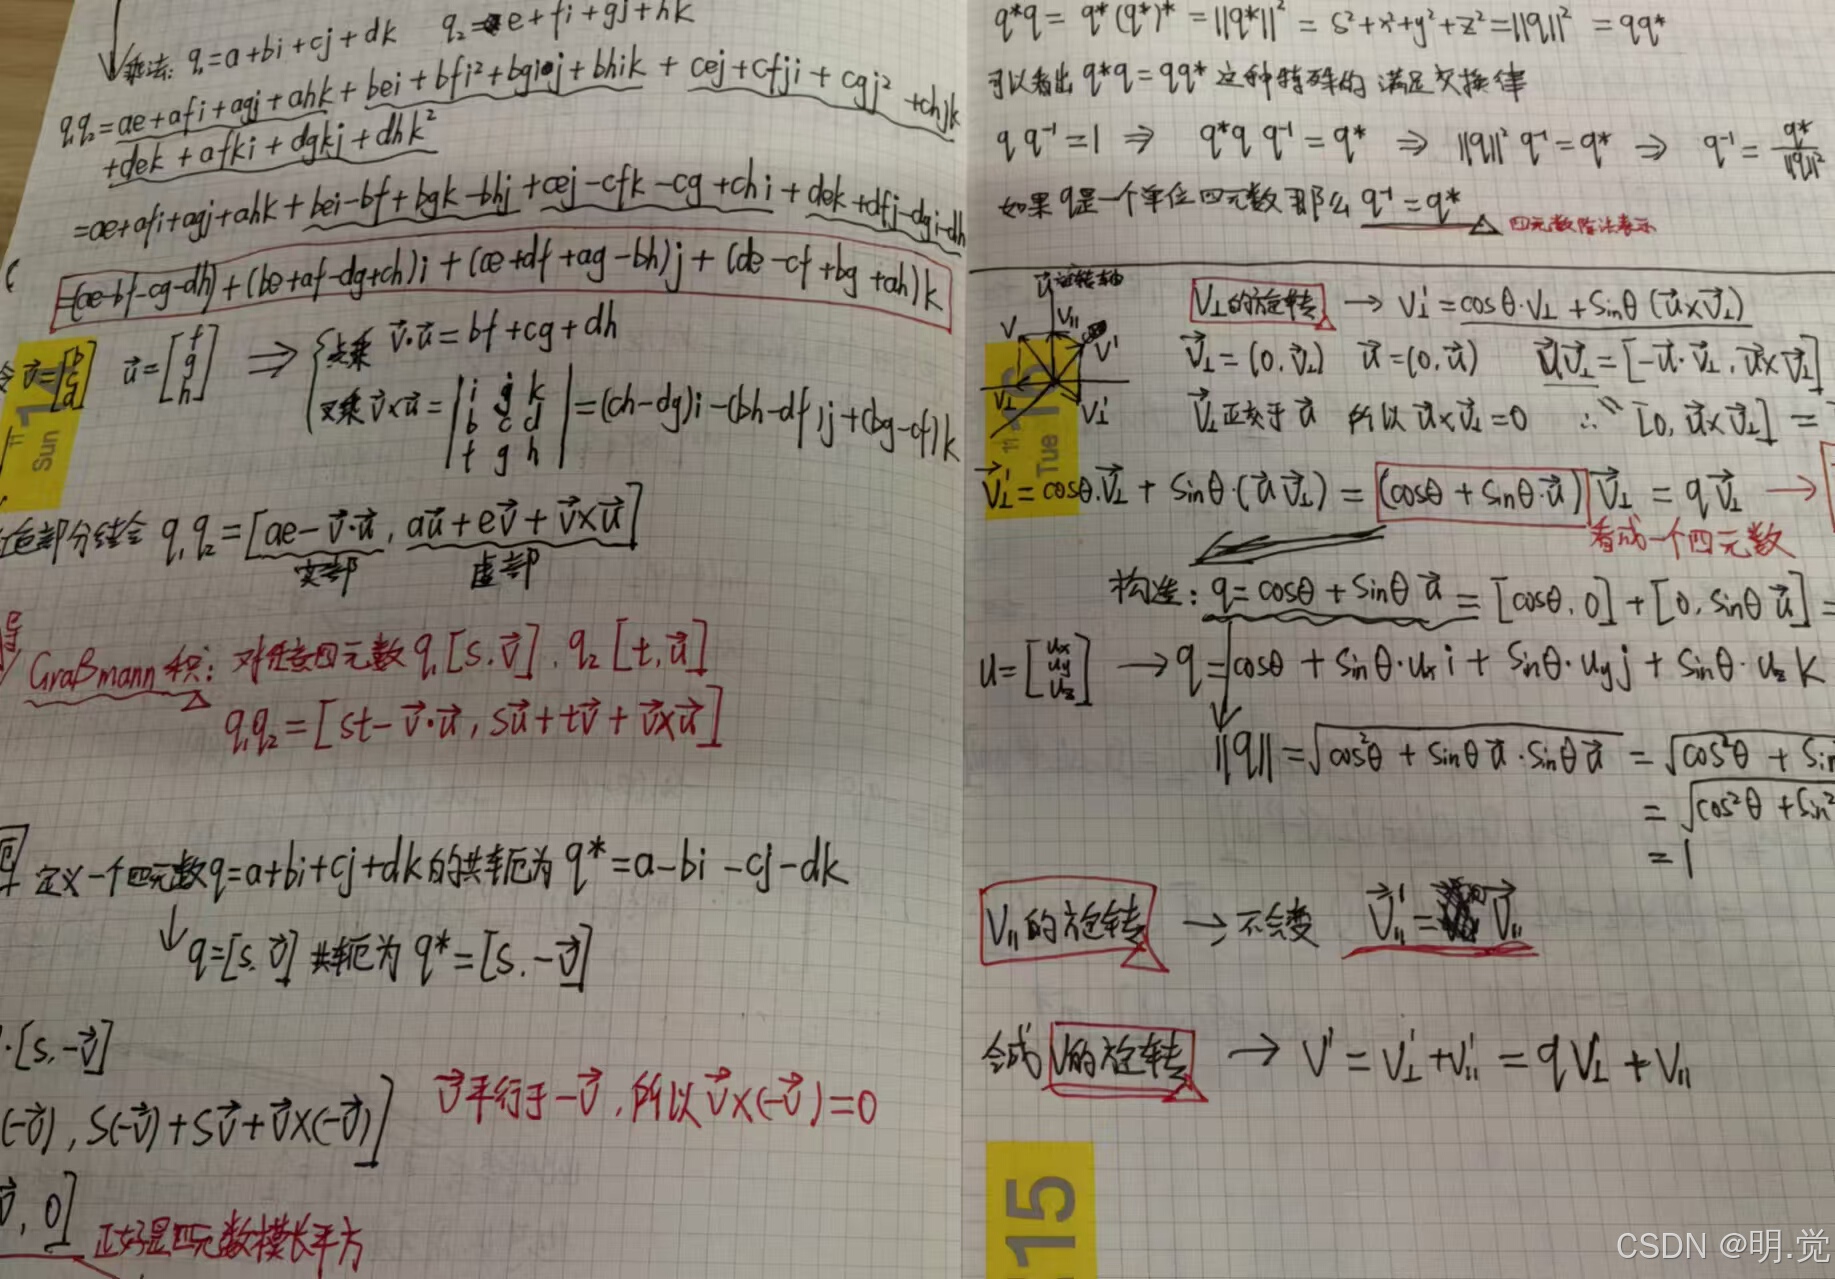 乘法: q₁=a+bi+cj+dk q₂=e+fi+gj+hk
q₁q₂=ae+afi+agj+ahk+bei+bfi²+bgij+bhik+cej+cfji+cgj²+chjk
+dek+dfki+dgkj+dhk²
=ae+afi+agj+ahk+bei-bf+bgk-bhj+cej-cfk-cg+chi+dek+dfj-dgi-dh
=(ae-bf-cg-dh)+(be+af-dg+ch)i+(ce+df+ag-bh)j+(de-cf+bg+ah)k
令 v⃗=[b c d] u⃗=[f g h] ⇒ { 点乘 v⃗·u⃗=bf+cg+dh
叉乘 v⃗×u⃗=|i j k; b c d; f g h|=(ch-dg)i-(bh-df)j+(bg-cf)k
Sun 14
色部分结合 q₁q₂=[ae-v⃗·u⃗, au⃗+ev⃗+v⃗×u⃗]
实部 虚部
Graßmann积: 对任意四元数q₁[s,v⃗], q₂[t,u⃗]
q₁q₂=[st-v⃗·u⃗, su⃗+tv⃗+v⃗×u⃗]
定义一个四元数q=a+bi+cj+dk的共轭为q*=a-bi-cj-dk
↓q=[s,v⃗] 共轭为 q*=[s,-v⃗]
·[s,-v⃗]
(-v⃗), s(-v⃗)+sv⃗+v⃗×(-v⃗)] v⃗平行于-v⃗, 所以v⃗×(-v⃗)=0
v⃗, 0] 正好是四元数模长平方
q*q=q*(q*)*=||q*||²=s²+x²+y²+z²=||q||²=qq*
可以看出 q*q=qq* 这种特殊的满足交换律
qq⁻¹=1 ⇒ q*qq⁻¹=q* ⇒ ||q||²q⁻¹=q* ⇒ q⁻¹=q*/||q||²
如果q是一个单位四元数那么 q⁻¹=q* 四元数除法表示
u⃗旋转轴
V V∥ V' V⊥ V⊥'
V⊥的旋转 → V⊥'=cosθ·V⊥+sinθ(u⃗×v⃗⊥)
v⃗⊥=(0,v⃗⊥) u⃗=(0,u⃗) u⃗v⃗⊥=[-u⃗·v⃗⊥, u⃗×v⃗⊥]
v⃗⊥正交于u⃗ 所以u⃗×v⃗⊥=0 ∴ [0, u⃗×v⃗⊥]=
11 Tue 16
v⃗⊥'=cosθ·v⃗⊥+sinθ·(u⃗v⃗⊥)=(cosθ+sinθ·u⃗)v⃗⊥=qv⃗⊥ →
看成一个四元数
构造: q=cosθ+sinθu⃗=[cosθ,0]+[0,sinθu⃗]=
u=[ux uy uz] → q=cosθ+sinθ·uxi+sinθ·uyj+sinθ·uzk
||q||=√cos²θ+sinθu⃗·sinθu⃗=√cos²θ+sin
=√cos²θ+sin²
=1
V∥的旋转 → 不会变 v⃗∥'=v⃗∥
合成 V的旋转 → V'=V⊥'+V∥'=qV⊥+V∥
15
CSDN @明.觉